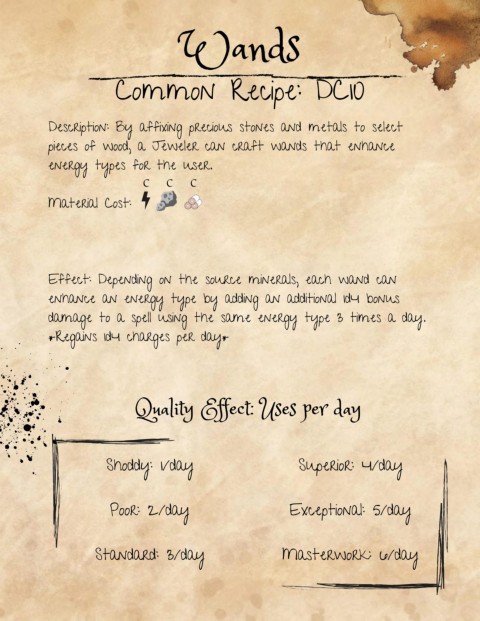 Wands
Common Recipe: DC10
Description: By affixing precious stones and metals to select
pieces of wood, a Jeweler can craft wands that enhance
energy types for the user.
C C C
Material Cost:
Effect: Depending on the source minerals, each wand can
enhance an energy type by adding an additional 1d4 bonus
damage to a spell using the same energy type 3 times a day.
*Regains 1d4 charges per day*
Quality Effect: Uses per day
Shoddy: 1/day
Superior: 4/day
Poor: 2/day
Exceptional: 5/day
Standard: 3/day
Masterwork: 6/day